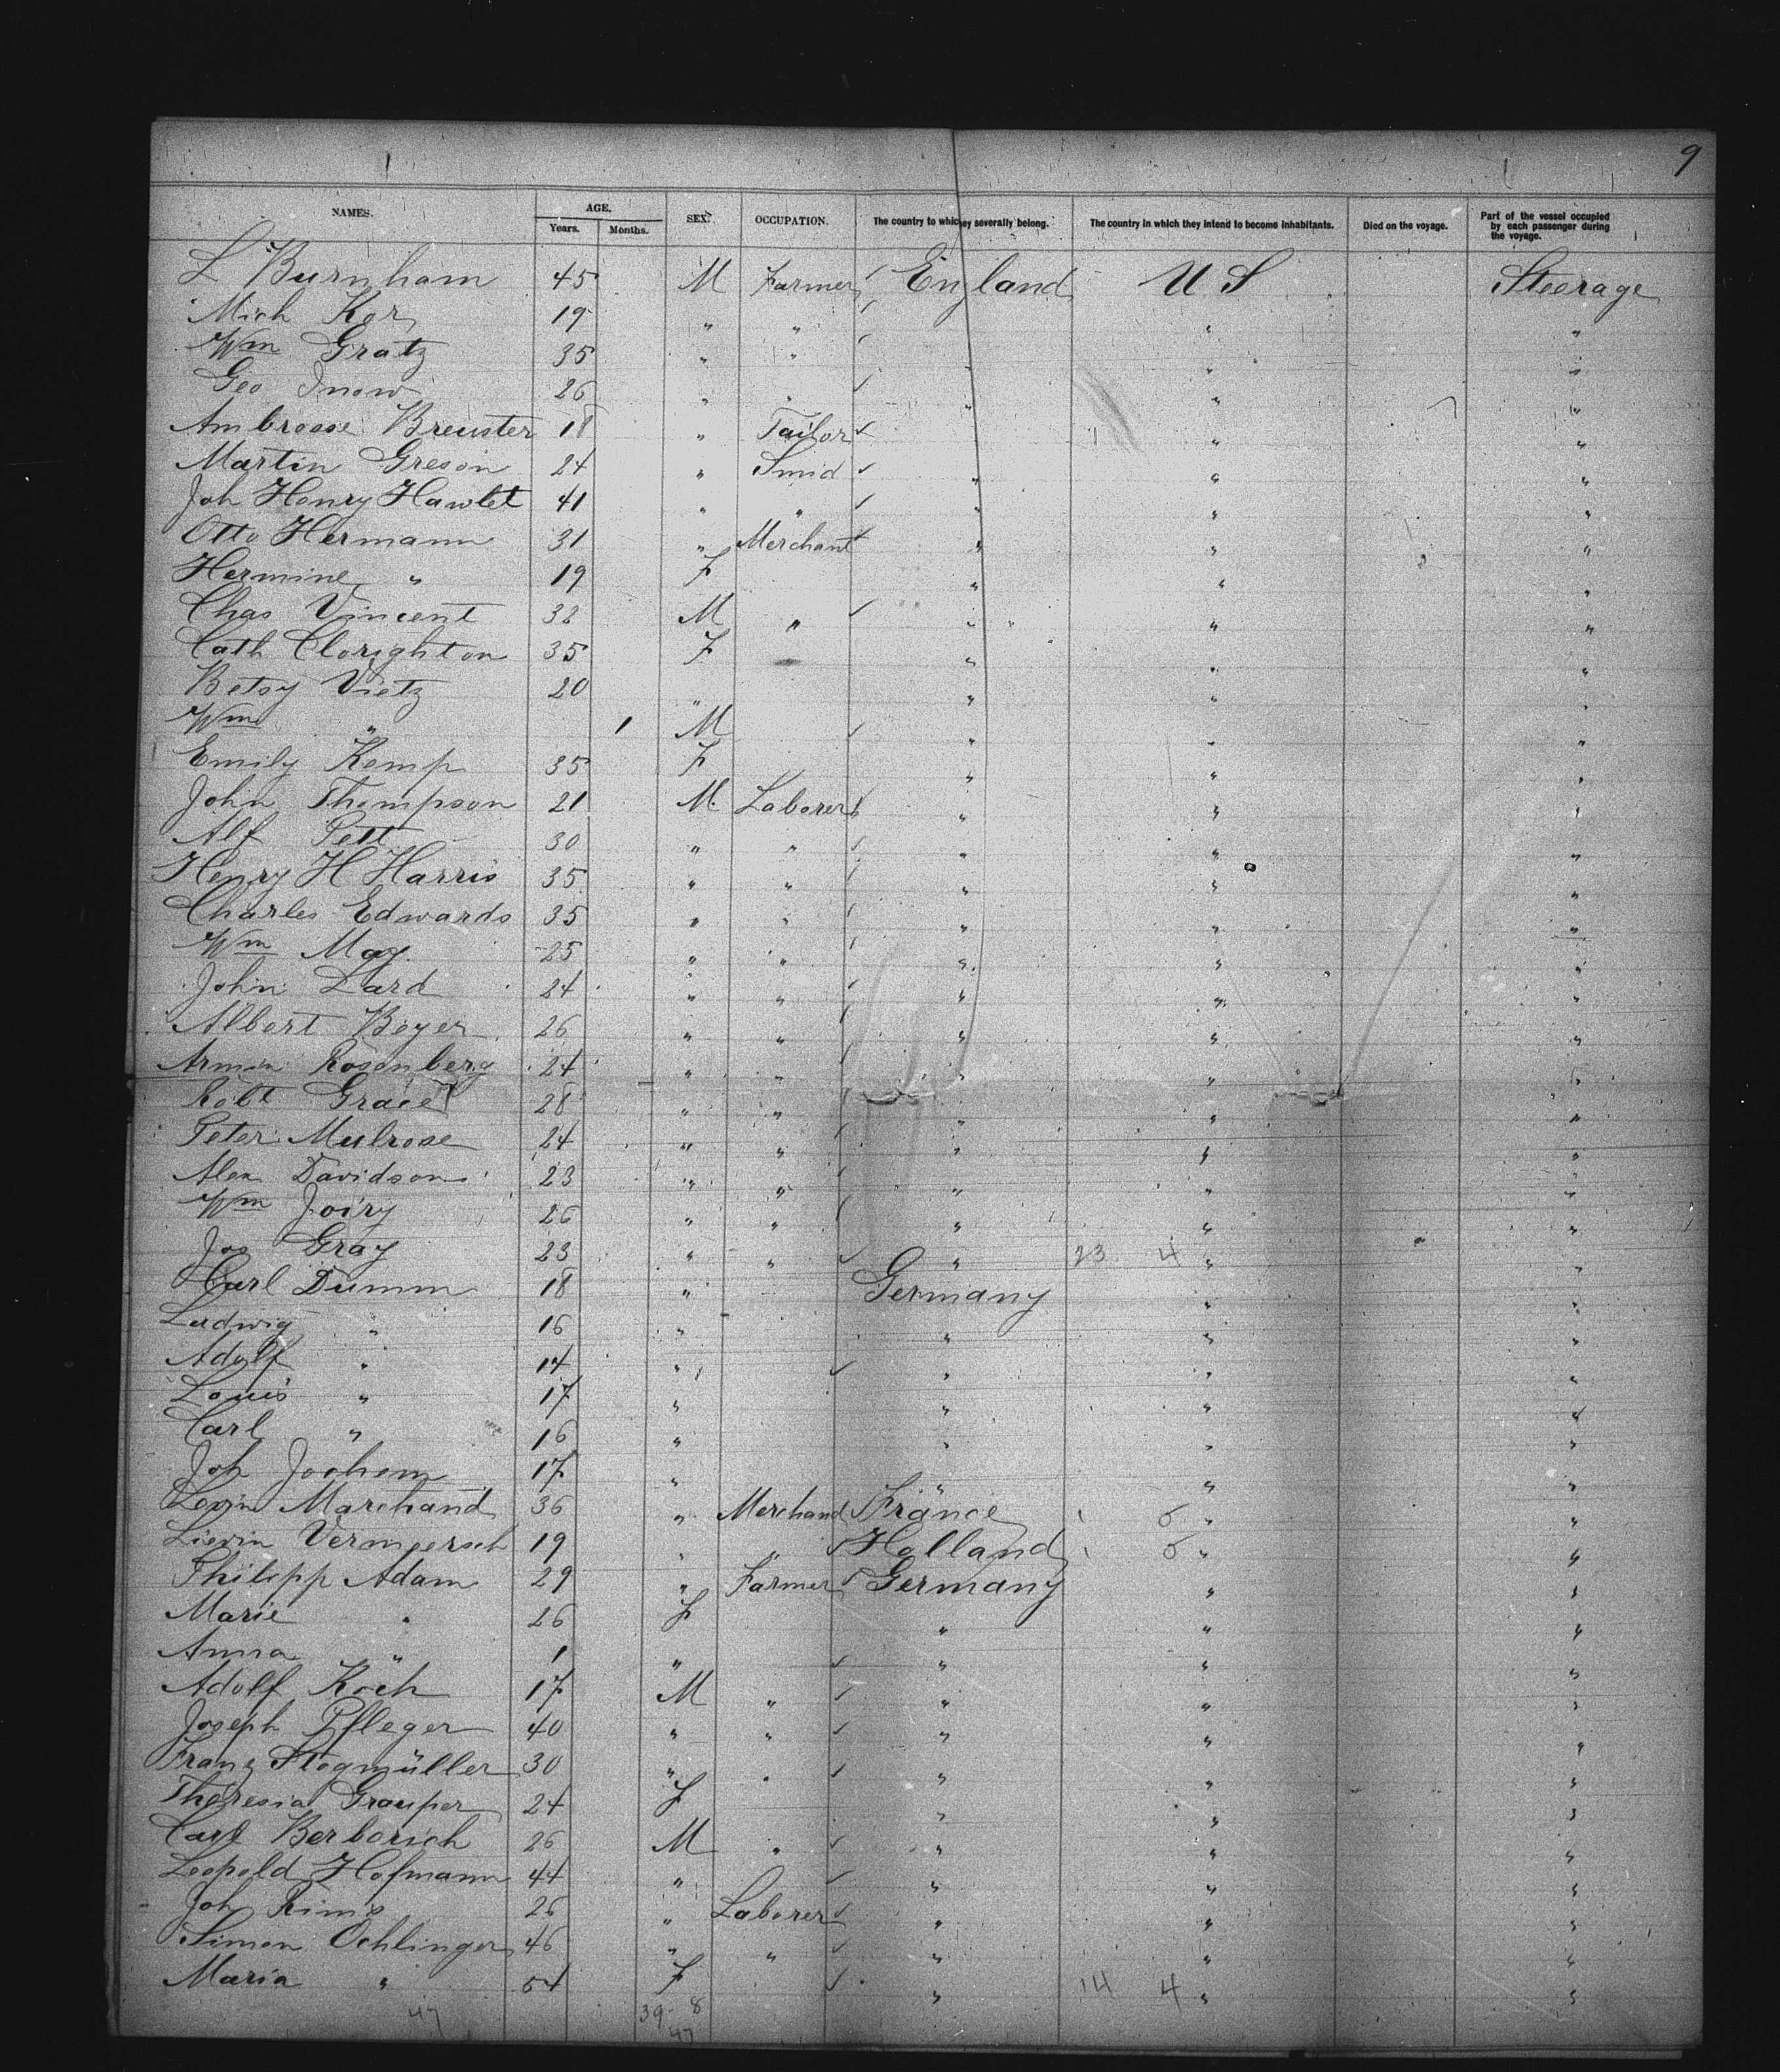 9
NAMES. AGE. SEX. OCCUPATION. The country to which they severally belong. The country in which they intend to become inhabitants. Died on the voyage. Part of the vessel occupied by each passenger during the voyage.
Years. Months.
L Burnham 45 M Farmer England U S Steerage
Mich Kor 19 " " " "
Wm Gratz 35 " " " " "
Geo Snow 26 " " " " "
Ambrose Breuster 18 " Tailor " "
Martin Greson 24 " Smid " " "
Joh Henry Hawlet 41 " " " " "
Otto Hermann 31 " Merchant " " "
Hermine " 19 F " " "
Chas Vincent 32 M " " " "
Cath Clorighton 35 F " " "
Betsy Vietz 20 " " " "
Wm " 1 M " " "
Emily Kemp 35 F " " "
John Thompson 21 M Laborer " " "
Alf Pett 30 " " " " "
Henry H Harris 35 " " " " "
Charles Edwards 35 " " " " "
Wm May 25 " " " " "
John Lard 24 " " " " "
Albert Beyer 26 " " " " "
Armin Rosenberg 24 " " " " "
Robt Grace 28 " " " " "
Peter Mulrose 24 " " " " "
Alex Davidson 23 " " " " "
Wm Joiry 26 " " " " "
Jos Gray 23 " " " 23 4 " "
Carl Dumm 18 " Germany " "
Ludwig " 16 " " " "
Adolf " 14 " " " "
Louis " 17 " " " "
Carl " 16 " " " "
Joh Jochem 17 " " " "
Levin Marchand 36 " Merchand France " "
Lievin Vermeersch 19 " " Holland " "
Philipp Adam 29 " Farmer Germany " "
Marie " 26 F " " "
Anna " 1 " " " "
Adolf Koch 17 M " " " "
Joseph Pfleger 40 " " " " "
Franz Stogmüller 30 " " " " "
Theresia Grauper 24 F " " "
Carl Berberich 26 M " " " "
Leopold Hofmann 44 " " " "
Joh Rims 26 " Laborer " " "
Simon Oehlinger 46 " " " " "
Maria " 54 F " 14 4 " "
47 39 8
47